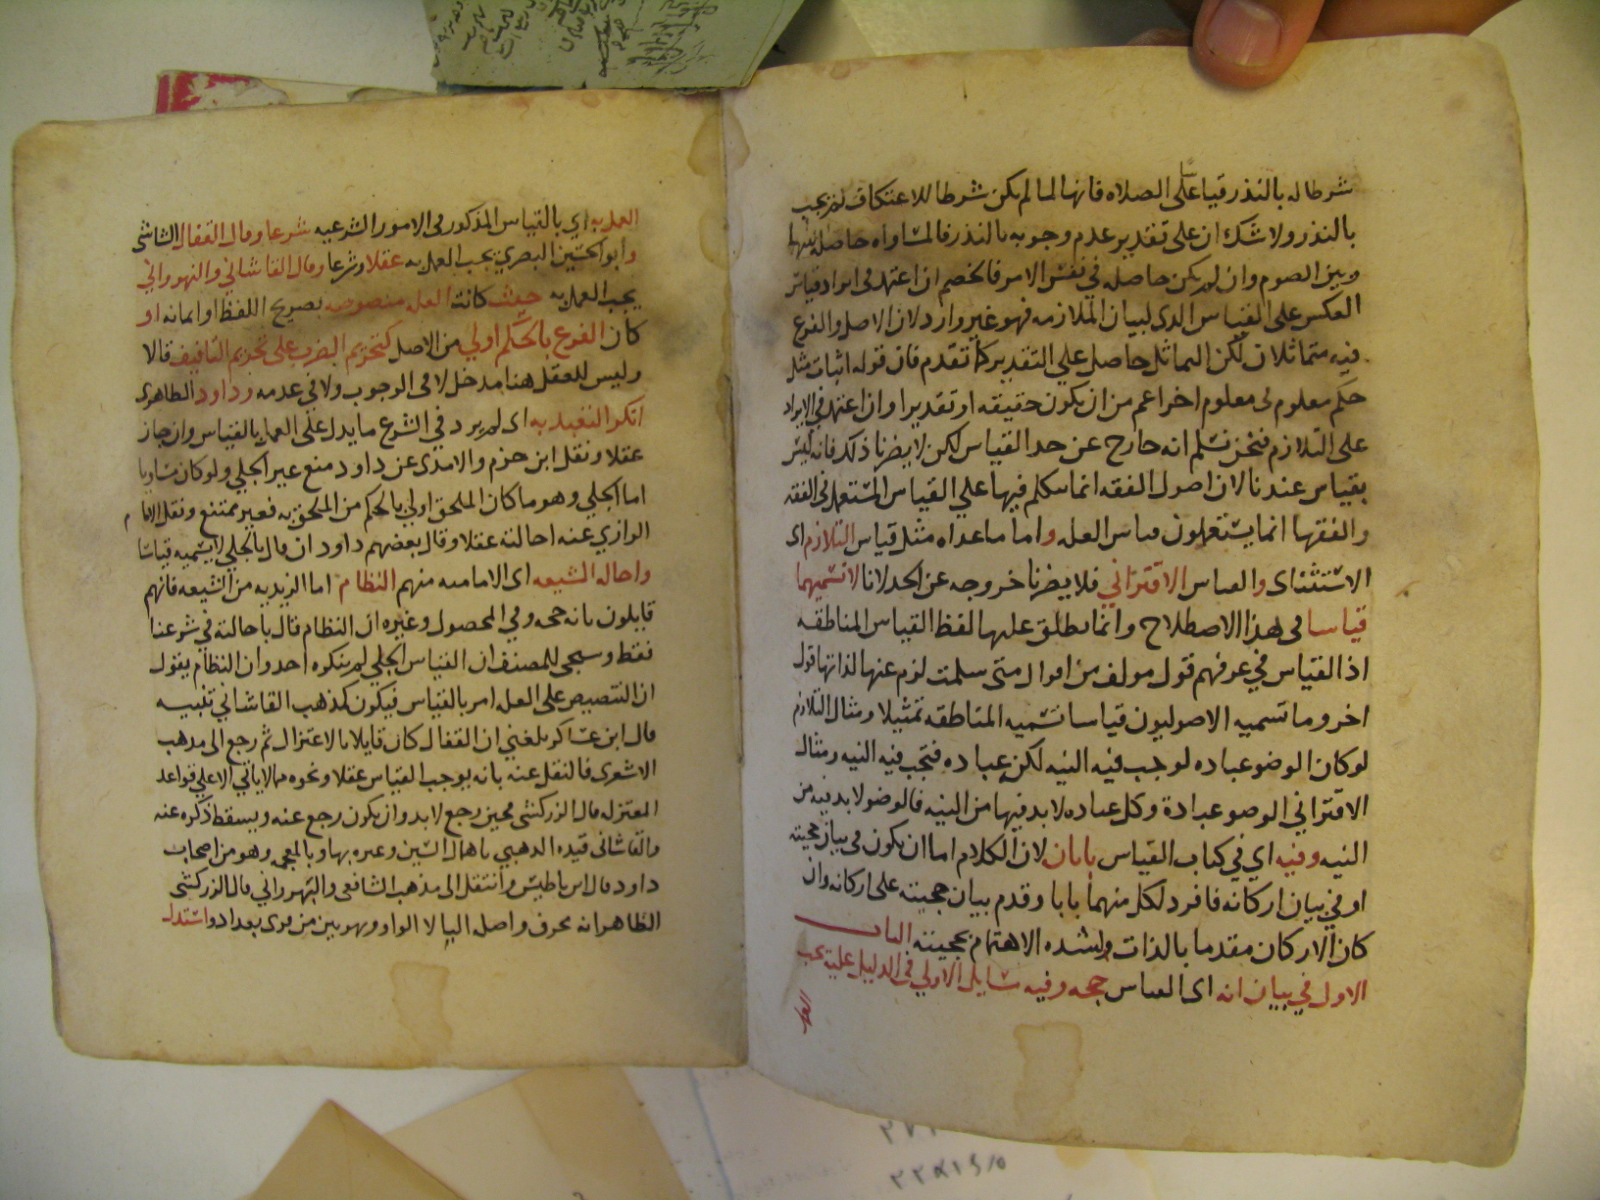 شرطا له بالنذر قياسا على الصلاه فانها لما لم يكن شرطا للاعتكاف لم يجب
بالنذر ولا شك ان على تقدير عدم وجوبه بالنذر فالمساواه حاصله بينها
وبين الصوم وان لم يكن حاصله في نفس الامر فالخصم ان اعتمد في ايراد قياس
العكس على القياس الذى لبيان الملازمه فهو غير وارد لان الاصل والفرع
فيه متماثلان لكن التماثل حاصل علي التقدير كما تقدم فان قوله اثبات مثل
حكم معلوم في معلوم اخر اعم من ان يكون حقيقه او تقديرا وان اعتمد في الايراد
على التلازم فنحن نسلم انه خارج عن حد القياس لكن لا يضرنا ذلك فانه ليس
بقياس عندنا لان اصول الفقه انما يتكلم فيها علي القياس المستعمل في الفقه
والفقها انما يستعملون قياس العله واما ما عداه مثل قياس التلازم اى
الاستثناى والقياس الاقتراني فلا يضرنا خروجه عن الحد لانا لا نسميهما
قياسا في هذا الاصطلاح وانما يطلق عليها لفظ القياس المناطقه
اذ القياس في عرفهم قول مولف من اقوال متى سلمت لزم عنها لذاتها قول
اخر وما تسميه الاصوليون قياسا تسميه المناطقه تمثيلا ومثال التلازم
لو كان الوضو عباده لوجب فيه النيه لكن عباده فتجب فيه النيه ومثال
الاقتراني الوضو عبادة وكل عباده لا بد فيها من النيه فالوضو لا بد فيه من
النيه وفيه اي في كتاب القياس بابان لان الكلام اما ان يكون في بيان حجيته
او في بيان اركانه فافرد لكل منهما بابا وقدم بيان حجيته على اركانه وان
كان الاركان مقدما بالذات ولشده الاهتمام بحجيته الباب
الاول في بيان انه اى القياس حجه وفيه مسايل الاولي في الدليل عليه يجب
العمل
العمل به اي بالقياس المذكور في الامور الشرعيه شرعا وقال القفال الشاشى
وابو الحسين البصري يجب العمل به عقلا وشرعا وقال القاشاني والنهرواني
يجب العمل به حيث كانت العله منصوصه بصريح اللفظ او ايمائه او
كان الفرع بالحكم اولي من الاصل كتحريم الضرب على تحريم التافيف قالا
وليس للعقل هنا مدخل لا في الوجوب ولا في عدمه وداود الظاهرى
انكر التعبد به اى لم يرد في الشرع ما يدل على العمل بالقياس وان جاز
عقلا ونقل ابن حزم والامدى عن داود منع غير الجلي ولو كان مساويا
اما الجلي وهو ما كان الملحق اولي بالحكم من الملحق به فغير ممتنع ونقل الامام
الرازي عنه احالته عقلا وقال بعضهم داود ان قال بالجلي لا يسميه قياسا
واحاله الشيعه اى الاماميه منهم النظام اما الزيديه من الشيعه فانهم
قايلون بانه حجه وفي المحصول وغيره ان النظام قال باحالته في شرعنا
فقط وسيجى للمصنف ان القياس الجلي لم ينكره احد وان النظام يقول
ان التنصيص على العله امر بالقياس فيكون كمذهب القاشاني تنبيه
قال ابن عساكر بلغني ان القفال كان قايلا بالاعتزال ثم رجع الى مذهب
الاشعرى فالنقل عنه بانه يوجب القياس عقلا ونحوه مما لا ياتي الا علي قواعد
المعتزله قال الزركشى فحين رجع لا بد وان يكون رجع عنه ويسقط ذكره عنه
والقاشانى قيده الذهبي باهمال السين وغيره بها وبالمعجمه وهو من اصحاب
داود قال ابن باطيش وانتقل الى مذهب الشافعى والنهرواني قال الزركشى
الظاهر انه تحرف واصله اليا لا الواو ونهربين من قرى بغداد واستدل